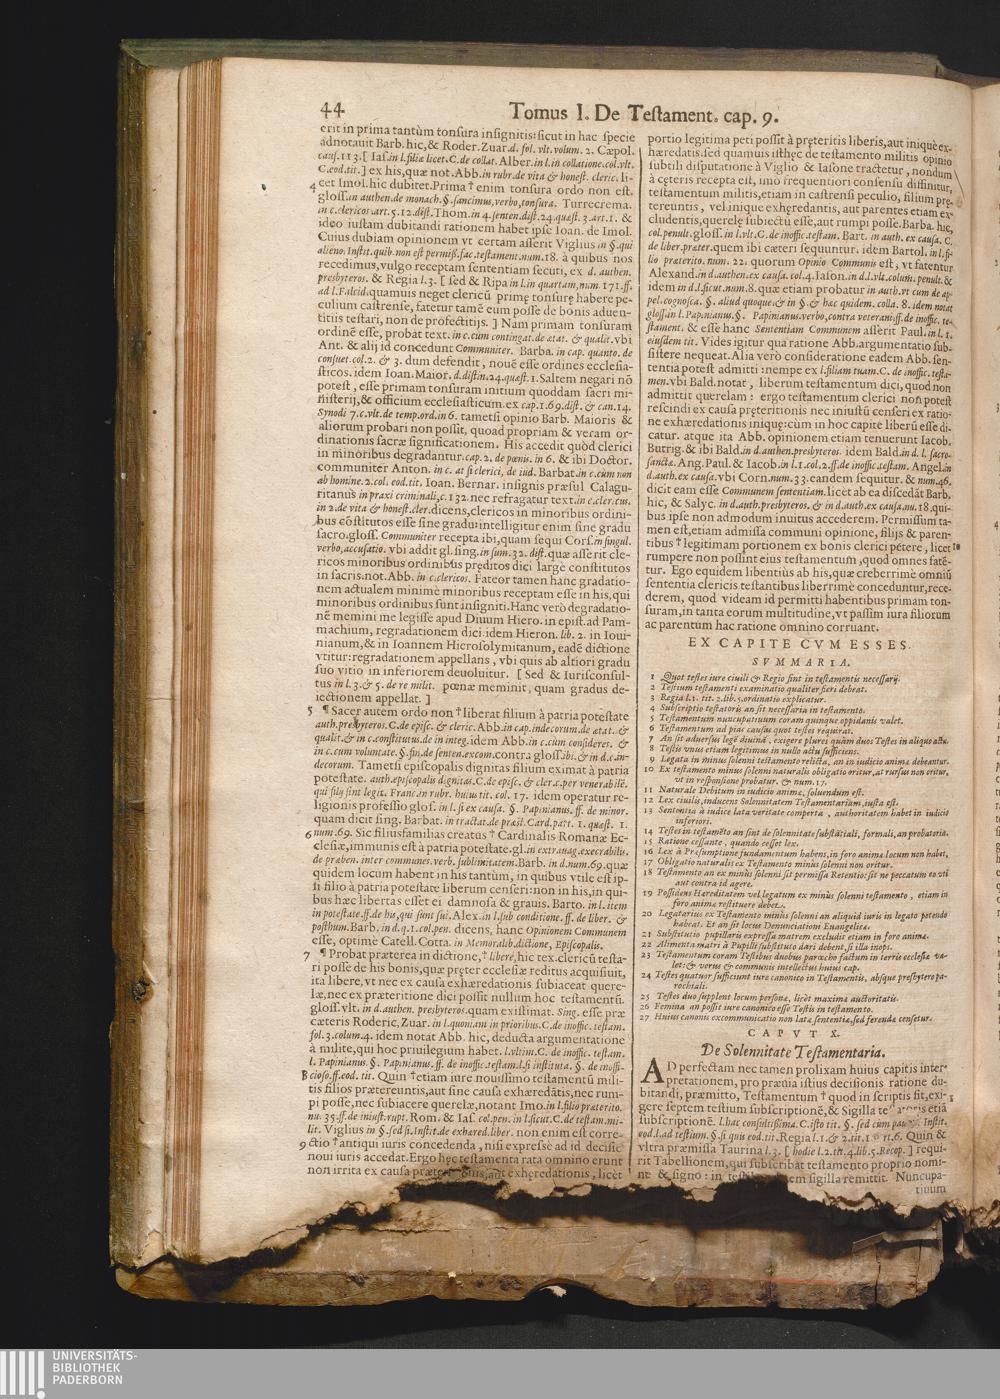 44
Tomus I. De Testament. cap. 9.
erit in prima tantùm tonsura insignitis: sicut in hac specie
adnotauit Barb. hic, & Roder. Zuar. d. fol. vlt. volum. 2. Cæpol.
caus. 113. [ Ias. in l. filiæ licet. C. de collat. Alber. in l. in collatione. col. vlt.
C. eod. tit. ] ex his, quæ not. Abb. in rubr. de vita & honest. cleric. li-
4 cet Imol. hic dubitet. Prima † enim tonsura ordo non est.
gloss. in authen. de monach. §. sancimus, verbo, tonsura. Turrecrema.
in c. clericos. art. 5. 12. dist. Thom. in 4. senten. dist. 24. quæst. 3. art. 1. &
ideo iustam dubitandi rationem habet ipse Ioan. de Imol.
Cuius dubiam opinionem vt certam asserit Viglius in §. qui
alieno. Instit. quib. non est permiss. fac. testament. num. 18. à quibus nos
recedimus, vulgo receptam sententiam secuti, ex d. authen.
presbyteros. & Regia l. 3. [ sed & Ripa in l. in quartam, num. 171. ff.
ad l. Falcid. quamuis neget clericũ primę tonsurę habere pe-
culium castrense, fatetur tamẽ eum posse de bonis aduen-
titiis testari, non de profectitijs. ] Nam primam tonsuram
ordinẽ esse, probat text. in c. cùm contingat. de ætat. & qualit. vbi
Ant. & alij id concedunt Communiter. Barba. in cap. quanto. de
consuet. col. 2. & 3. dum defendit, nouẽ esse ordines ecclesia-
sticos. idem Ioan. Maior. d. distin. 24. quæst. 1. Saltem negari nõ
potest, esse primam tonsuram initium quoddam sacri mi-
nisterij, & officium ecclesiasticum. ex cap. 1. 69. dist. & can. 14.
Synodi 7. c. vlt. de temp. ord. in 6. tametsi opinio Barb. Maioris &
aliorum probari non possit, quoad propriam & veram or-
dinationis sacræ significationem. His accedit quòd clerici
in minoribus degradantur. cap. 2. de pœnis. in 6. & ibi Doctor.
communiter Anton. in c. at si clerici, de iud. Barbat. in c. cùm non
ab homine. 2. col. eod. tit. Ioan. Bernar. insignis præsul Calagu-
ritanus in praxi criminali, c. 132. nec refragatur text. in c. cler. cus.
in 2. de vita & honest. cler. dicens, clericos in minoribus ordini-
bus cõstitutos esse sine gradu: intelligitur enim sine gradu
sacro. gloss. Communiter recepta ibi, quam sequi Cors. in singul.
verbo, accusatio. vbi addit gl. sing. in sum. 32. dist. quæ asserit cle-
ricos minoribus ordinibus pręditos dici largè constitutos
in sacris. not. Abb. in c. clericos. Fateor tamen hanc gradatio-
nem actualem minimè minoribus receptam esse in his, qui
minoribus ordinibus sunt insigniti. Hanc verò degradatio-
nẽ memini me legisse apud Diuum Hiero. in epist. ad Pam-
machium, regradationem dici. idem Hieron. lib. 2. in Ioui-
nianum, & in Ioannem Hierosolymitanum, eadẽ dictione
vtitur: regradationem appellans, vbi quis ab altiori gradu
suo vitio in inferiorem deuoluitur. [ Sed & Iurisconsul-
tus in l. 3. & 5. de re milit. pœnæ meminit, quam gradus de-
iectionem appellat. ]
5 ¶ Sacer autem ordo non † liberat filium à patria potestate
auth. presbyteros. C. de episc. & cleric. Abb. in cap. indecorum. de ætat. &
qualit. & in c. constitutus. de in integ. idem Abb. in c. cùm consideres. &
in c. cum voluntate. §. fin. de senten. excom. contra gloss. ibi. & in d. c. in-
decorum. Tametsi episcopalis dignitas filium eximat à patria
potestate. auth. episcopalis dignitas. C. de episc. & cler. & per venerabilẽ.
qui filij sint legit. Franc. in rubr. huius tit. col. 17. idem operatur re-
ligionis professio glos. in l. si ex causa. §. Papinianus. ff. de minor.
quam dicit sing. Barbat. in tractat. de præst. Card. part. 1. quæst. 1.
6 num. 69. Sic filiusfamilias creatus † Cardinalis Romanæ Ec-
clesiæ, immunis est à patria potestate. gl. in extrauag. execrabilis.
de præben. inter communes. verb. sublimitatem. Barb. in d. num. 69. quæ
quidem locum habent in his tantùm, in quibus vtile est ip-
si filio à patria potestate liberum censeri: non in his, in qui-
bus hæc libertas esset ei damnosa & grauis. Barto. in l. item
in potestate. ff. de his, qui sunt sui. Alex. in l. sub conditione. ff. de liber. &
posthum. Barb. in d. q. 1. col. pen. dicens, hanc Opinionem Communem
esse, optimè Catell. Cotta. in Memorialib. dictione, Episcopalis.
7 ¶ Probat præterea in dictione, † liberè, hic tex. clericũ testa-
ri posse de his bonis, quæ pręter ecclesiæ reditus acquisiuit,
ita liberè, vt nec ex causa exhæredationis subiaceat quere-
læ, nec ex præteritione dici possit nullum hoc testamentũ.
gloss. vlt. in d. authen. presbyteros. quam existimat. Sing. esse præ
cæteris Roderic. Zuar. in l. quoniam in prioribus. C. de inoffic. testam.
fol. 3. colum. 4. idem notat Abb. hic, deducta argumentatione
à milite, qui hoc priuilegium habet. l. vltim. C. de inoffic. testam.
l. Papinianus. §. Papinianus. ff. de inoffic. testam. l. si instituta. §. de inoffi-
8 cioso. ff. eod. tit. Quin † etiam iure nouissimo testamentũ mili-
tis filios prætereuntis, aut sine causa exhæredãtis, nec rum-
pi posse, nec subiacere querelæ, notant Imo. in l. filio præterito.
nu. 35. ff. de iniust. rupt. Rom. & Ias. col. pen. in l. sicut. C. de testam. mi-
lit. Viglius in §. sed si. Instit. de exhæred. liber. non enim est corre-
9 ctio † antiqui iuris concedenda, nisi expressè ad id decisio
noui iuris accedat. Ergo hęc testamenta rata omnino erunt
non irrita ex causa præteritionis, aut exhęredationis, licèt
portio legitima peti possit à pręteritis liberis, aut iniquè ex-
hæredatis. sed quamuis isthęc de testamento militis opinio
subtili disputatione à Viglio & Iasone tractetur, nondum
à cęteris recepta est, imo frequentiori consensu diffinitur,
testamentum militis, etiam in castrensi peculio, filium prę-
tereuntis, vel inique exhęredantis, aut parentes etiam ex-
cludentis, querelę subiectũ esse, aut rumpi posse. Barba. hic,
col. penult. gloss. in l. vlt. C. de inoffic. testam. Bart. in auth. ex causa. C.
de liber. præter. quem ibi cæteri sequuntur. idem Bartol. in l. fi-
lio præterito. num. 22. quorum Opinio Communis est, vt fatentur
Alexand. in d. authen. ex causa. col. 4. Iason. in d. l. vlt. colum. penult. &
idem in d. l. sicut. num. 8. quæ etiam probatur in auth. vt cum de ap-
pel. cognosca. §. aliud quoque. & in §. & hæc quidem. colla. 8. idem notat
gloss. in l. Papinianus. §. Papinianus. verbo, contra veterani. ff. de inoffic. te-
stament. & esse hanc Sententiam Communem asserit Paul. in l. 1.
eiusdem tit. Vides igitur qua ratione Abb. argumentatio sub-
sistere nequeat. Alia verò consideratione eadem Abb. sen-
tentia potest admitti: nempe ex l. filiam tuam. C. de inoffic. testa-
men. vbi Bald. notat, liberum testamentum dici, quod non
admittit querelam: ergo testamentum clerici non potest
rescindi ex causa pręteritionis nec iniustũ censeri ex ratio-
ne exhæredationis iniquę: cùm in hoc capite liberũ esse di-
catur. atque ita Abb. opinionem etiam tenuerunt Iacob.
Butrig. & ibi Bald. in d. authen. presbyteros. idem Bald. in d. l. sacro-
sanctæ. Ang. Paul. & Iacob. in l. 1. col. 2. ff. de inoffic. testam. Angel. in
d. auth. ex causa. vbi Corn. num. 33. eandem sequitur. & num. 46.
dicit eam esse Communem sententiam. licet ab ea discedãt Barb.
hic, & Salyc. in d. auth. presbyteros. & in d. auth. ex causa. nu. 18. qui-
bus ipse non admodum inuitus accederem. Permissum ta-
men est, etiam admissa communi opinione, filijs & paren-
tibus † legitimam portionem ex bonis clerici petere, licet 10
rumpere non possint eius testamentum, quod omnes fatẽ-
tur. Ego equidem libentiùs ab his, quæ creberrimè omniũ
sententia clericis testantibus liberrimè conceduntur, rece-
derem, quod videam id permitti habentibus primam ton-
suram, in tanta eorum multitudine, vt passim iura filiorum
ac parentum hac ratione omnino corruant.
EX CAPITE CVM ESSES.
SVMMARIA.
1 Quot testes iure ciuili & Regio sint in testamentis necessarij.
2 Testium testamenti examinatio qualiter fieri debeat.
3 Regia l. 1. tit. 2. lib. 5. ordinatio explicatur.
4 Subscriptio testatoris an sit necessaria in testamento.
5 Testamentum nuncupatiuum coram quinque oppidanis valet.
6 Testamentum ad pias causas quot testes requirat.
7 An sit aduersus legẽ diuinã, exigere plures quàm duos Testes in aliquo actu.
8 Testis vnus etiam legitimus in nullo actu sufficiens.
9 Legata in minus solenni testamento relicta, an in iudicio animæ debeantur.
10 Ex testamento minus solenni naturalis obligatio oritur, at rursus non oritur,
vt in responsione probatur. & num. 17.
11 Naturale Debitum in iudicio animæ, soluendum est.
12 Lex ciuilis, inducens Solennitatem Testamentariam, iusta est.
13 Sententia à iudice lata veritate comperta, authoritatem habet in iudicio
inferiori.
14 Testes in testamẽto an sint de solennitate substãtiali, formali, an probatoria.
15 Ratione cessante, quando cesset lex.
16 Lex à Præsumptione fundamentum habens, in foro animæ locum non habet.
17 Obligatio naturalis ex Testamento minùs solenni non oritur.
18 Testamento an ex minùs solenni sit permissa Retentio: sit ne peccatum eo vti
aut contra id agere.
19 Possidens Hæreditatem vel legatum ex minùs solenni testamento, etiam in
foro animæ restituere debet.
20 Legatarius ex Testamento minùs solenni an aliquid iuris in legato petendo
habeat. Et an sit locus Denunciationi Euangelicæ.
21 Substitutio pupillaris expressa matrem excludit etiam in foro animæ.
22 Alimenta matri à Pupilli substituto dari debent, si illa inops.
23 Testamentum coram Testibus duobus parocho factum in terris ecclesiæ va-
let: & verus & communis intellectus huius cap.
24 Testes quatuor sufficiunt iure canonico in Testamentis, absque presbytero pa-
rochiali.
25 Testes duo supplent locum personæ, licèt maximæ auctoritatis.
26 Femina an possit iure canonico esse Testis in testamento.
27 Huius canonis excommunicatio non latæ sententiæ, sed ferendæ censetur.
CAPVT X.
De Solennitate Testamentaria.
AD perfectam nec tamen prolixam huius capitis inter
pretationem, pro præuia istius decisionis ratione du-
bitandi, præmitto, Testamentum † quod in scriptis sit, exi- 1
gere septem testium subscriptionẽ, & Sigilla testatoris etiã
subscriptionẽ. l. hac consultissima. C. isto tit. §. sed cùm Instit.
eod. l. ad testium. §. si quis eod. tit. Regia l. 1. & 2. tit. 1. part. 6. Quin &
vltra præmissa Taurina l. 3. [ hodie l. 2. tit. 4. lib. 5. Recop. ] requi-
rit Tabellionem, qui subscribat testamento proprio nomi-
ne & signo: in sigilla remittit. Nuncupa-
tiuum
UNIVERSITÄTS-
BIBLIOTHEK
PADERBORN